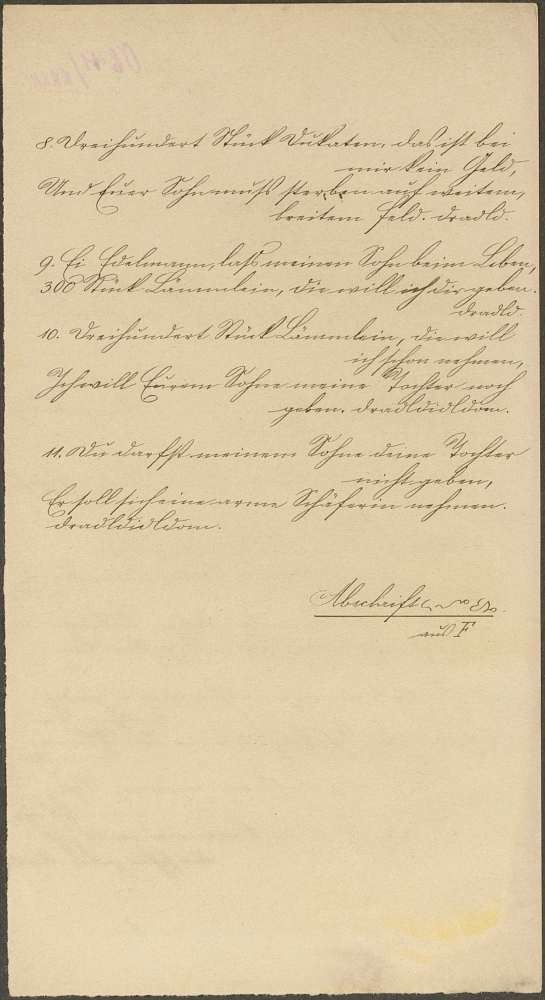 8. Dreihundert Stück Dukaten, das ist bei
mir kein Geld,
Und Euer Sohn muss sterben auf weitem,
breitem Feld. dradld.
9. Ei Edelmann, lass meinen Sohn beim Leben,
300 Stück Lämmlein, die will ich dir geben.
dradld.
10. Dreihundert Stück Lämmlein, die will
ich schon nehmen,
Ich will Eurem Sohne meine Tochter noch
geben. dradldidldom.
11. Du darfst meinem Sohne deine Tochter
nicht geben,
Er soll sich eine arme Schäferin nehmen.
dradldidldom.
Abschrift
aus F